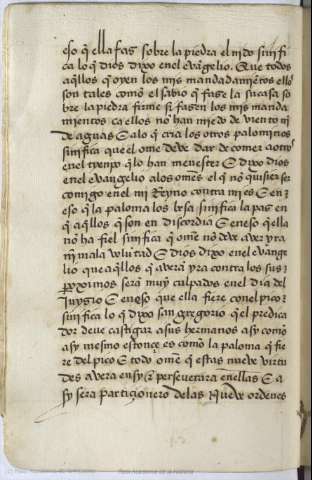 eso q̃ ella fas sobre la piedra el nido sinifi
ca lo q̃ dios dixo en el evãgelio. Que todos
aq̃llos q̃ oyen los mis mandadamiẽtos ellos
son tales como el sabio q̃ fase la su casa so
bre la piedra firme si fasen los mis manda
mientos ca ellos no han miedo de viento ni
de aguas E a lo q̃ cria los otros palominos
sinifica que el ome deve dar de comer a otros
en el tienpo q̃ lo han menester E dixo dios
en el evangelio a los omẽs el q̃ no quisier ser
comigo en el mi Reyno contra mi es E en
eso q̃ la paloma los besa sinifica la pas en
q̃ aq̃llos q̃ son en discordia E en eso q̃ ella
no ha fiel sinifica q̃ ome no deve aver yra
ni mala volũtad E dios dixo en el evange
lio que aq̃llos q̃ averã yra contra los sus
proximos serã muy culpados en el dia del
Juysio E en eso que ella fiere con el pico
sinifica lo q̃ dixo san gregorio q̃ el predica
dor deve castigar a sus hermanos asy como
asy mesmo estonçes como la paloma q̃ fie
re del pico E todo ome q̃ estas nueve virtu
des avera en sy E perseverara en ellas E a
sy sera partiçionero de las nueve ordenes